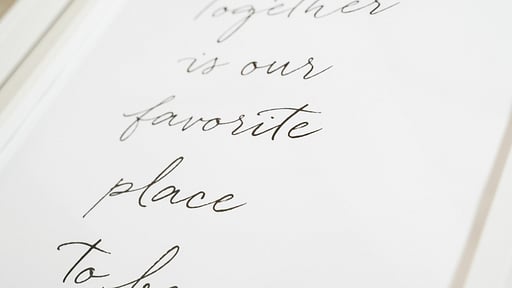 Together
is our
favorite
place
to be